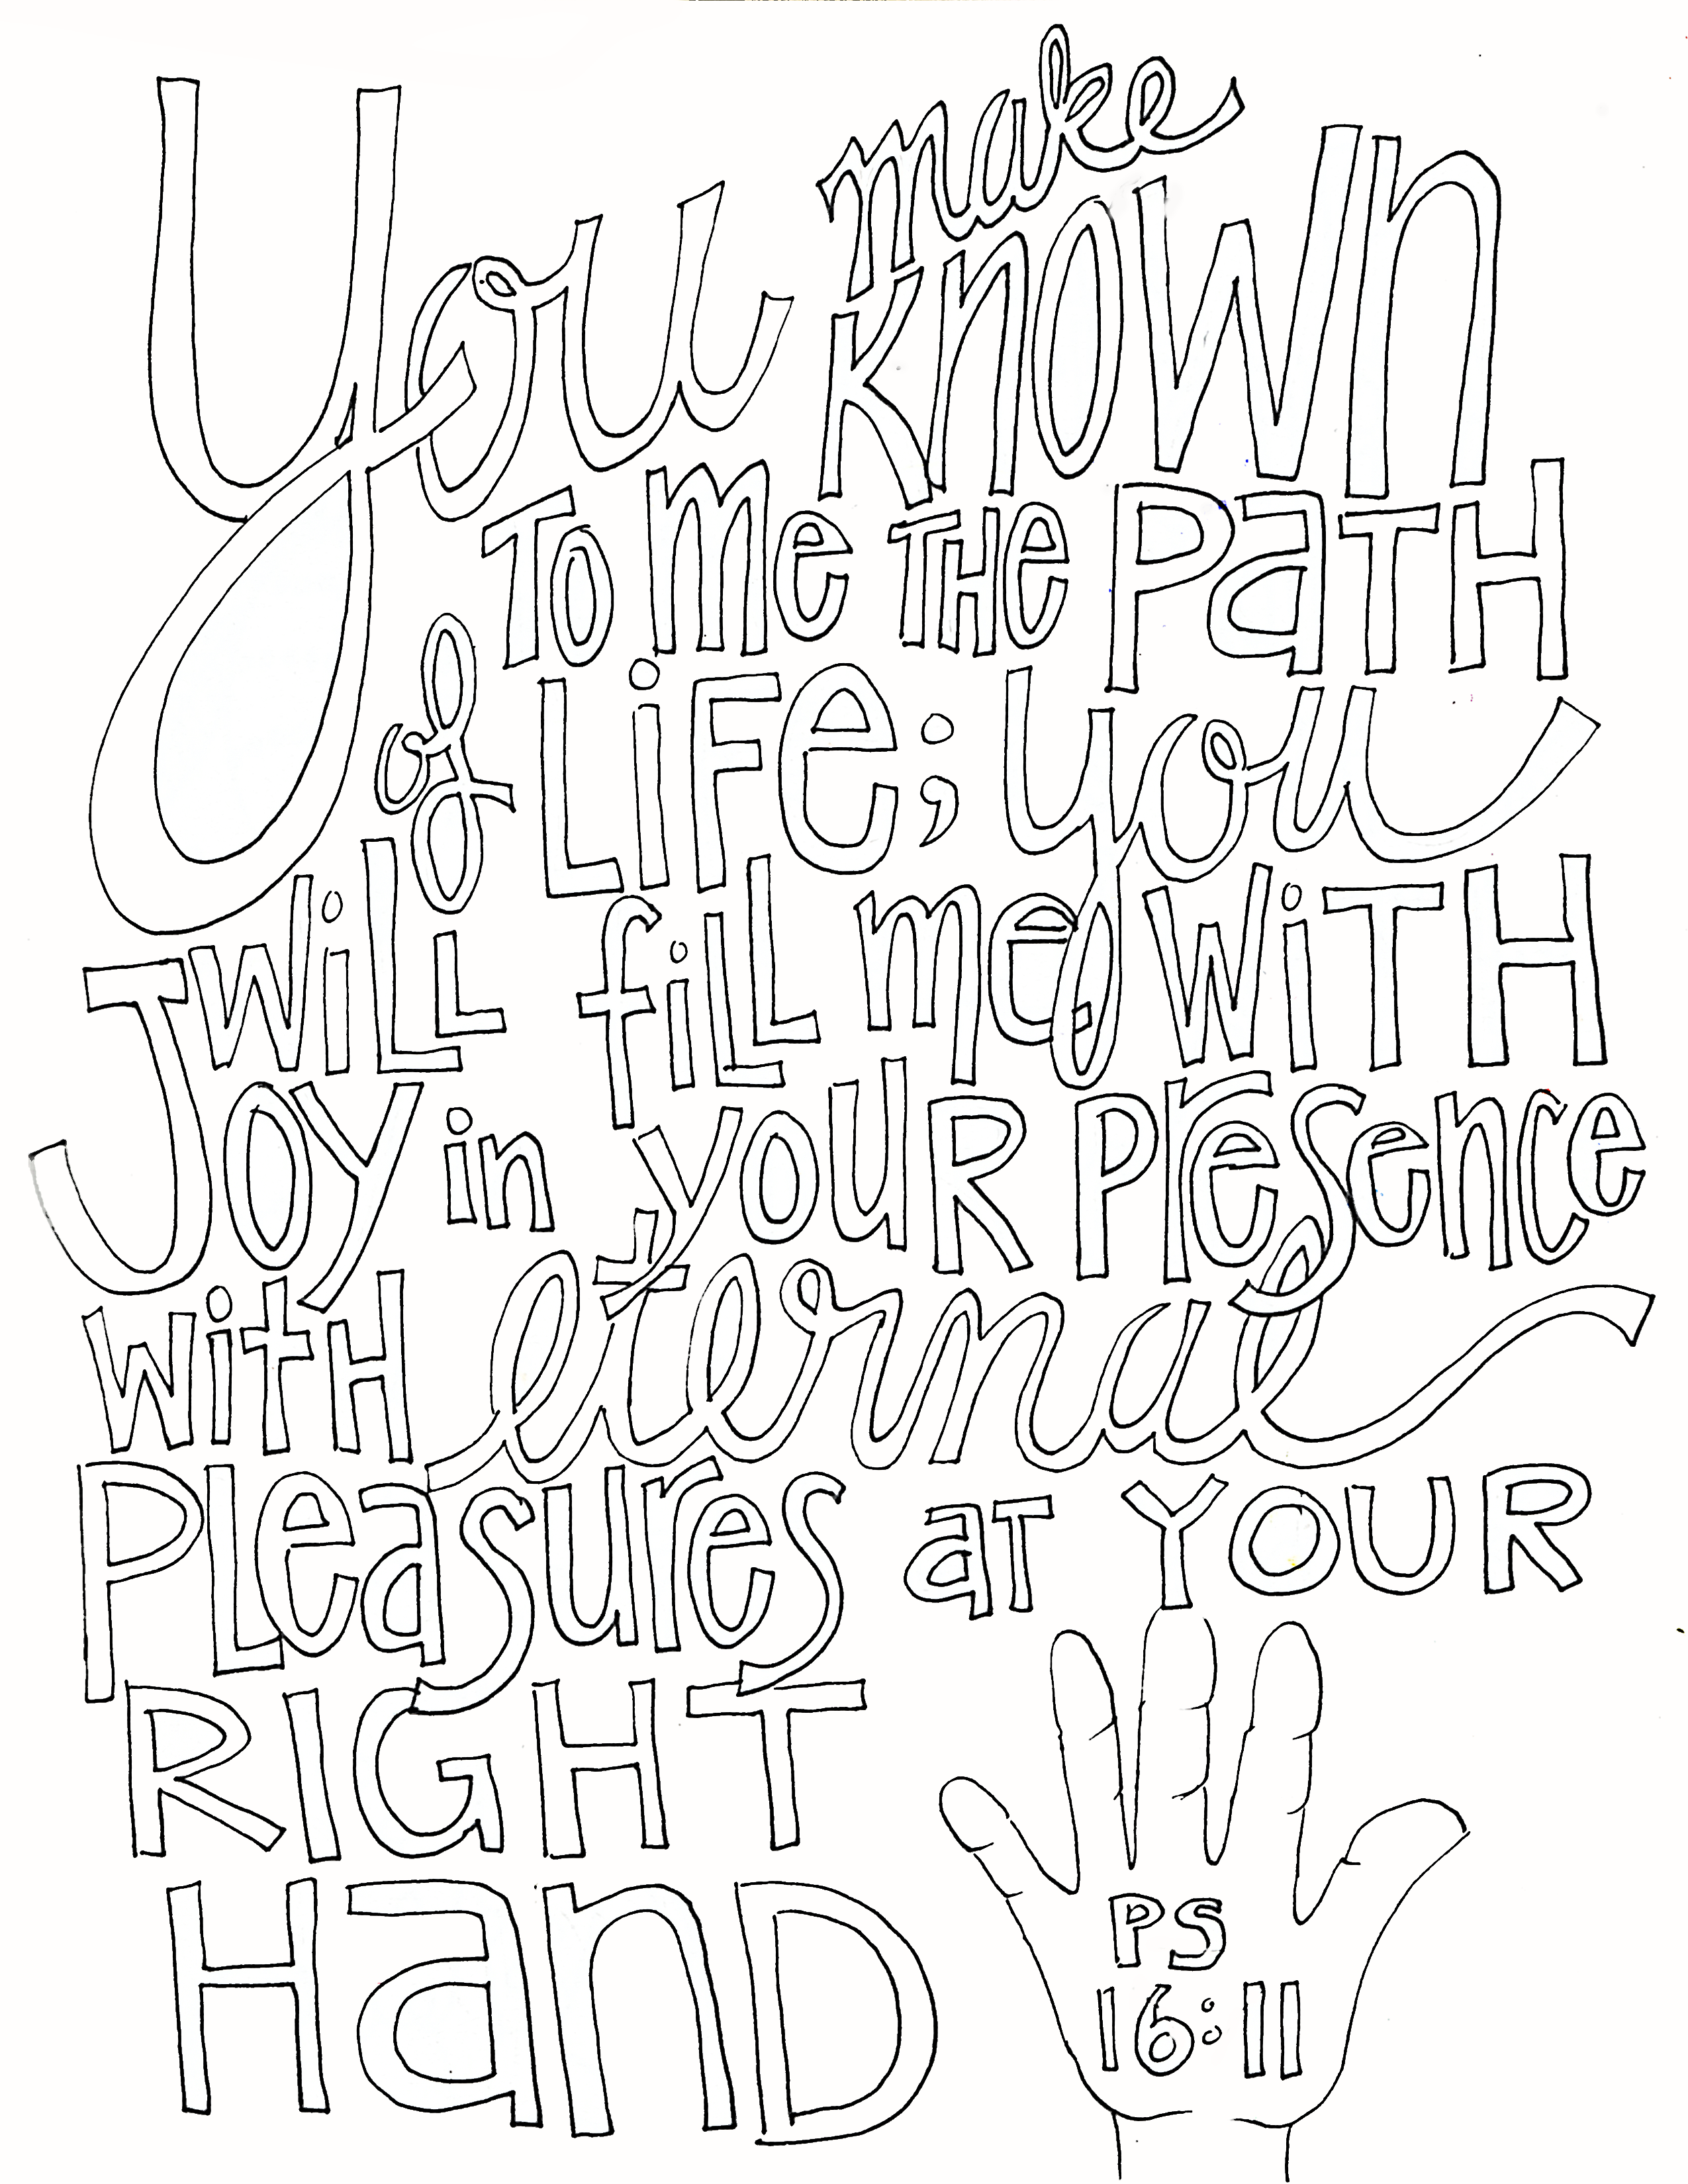 You make
known
To me THe PaTH
of LiFe; you
WiLL fiLL me WiTH
JOY in yOUR Presence
WitH eternal
PLeasures aT YOUR
RIGHT
HanD
PS
16:11